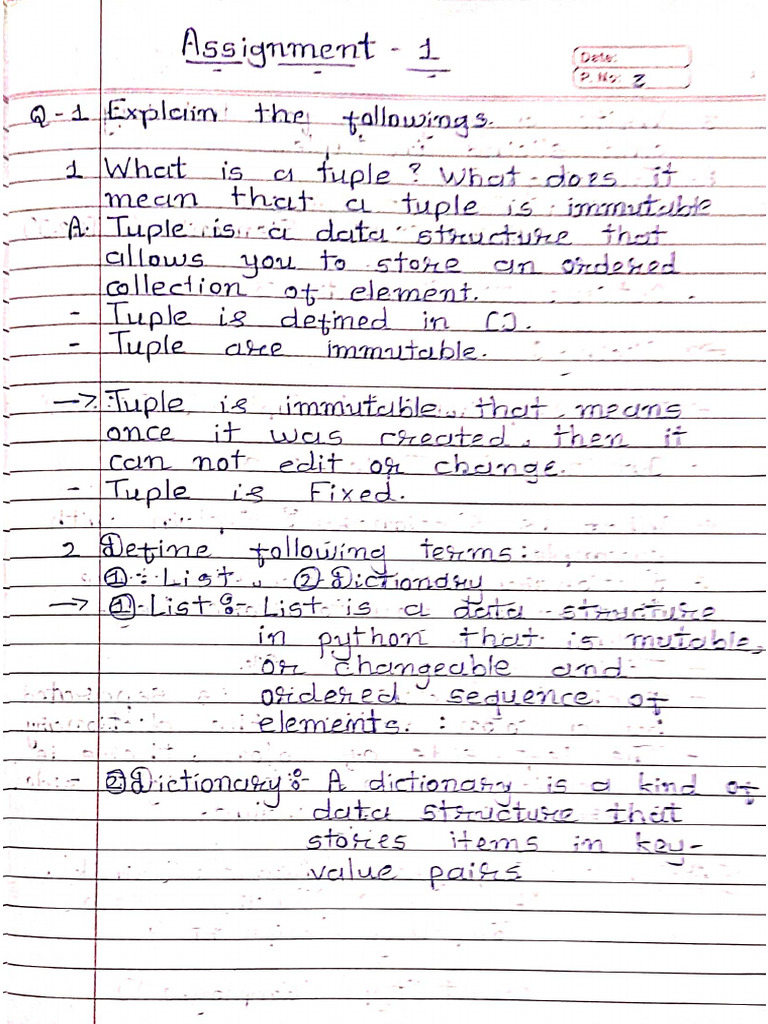 Assignment - 1
Date:
P. No: 2
Q-1 Explain the followings.
1 What is a tuple? What does it
mean that a tuple is immutable
A. Tuple is a data structure that
allows you to store an ordered
collection of element.
- Tuple is defined in ().
- Tuple are immutable.
→ Tuple is immutable, that means
once it was created, then it
can not edit or change.
- Tuple is Fixed.
2 Define following terms:
① List, ② Dictionary
→ ① List :- List is a data structure
in python that is mutable,
or changeable and
ordered sequence of
elements.
- ② Dictionary :- A dictionary is a kind of
data structure that
stores items in key-
value pairs